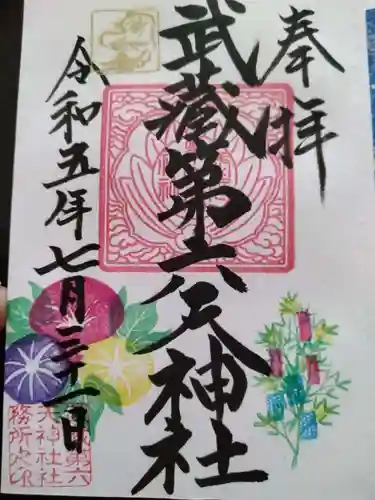 奉拝
武蔵第六天神社
令和五年七月三十一日
武蔵第六
天神社社
務所之印